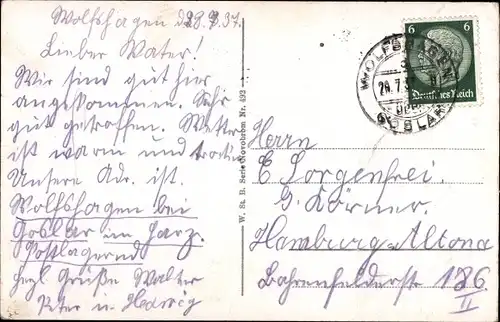 Wolfshagen d. 28.7.37.
Lieber Vater!
Wir sind gut hier
angekommen. Sehr
gut getroffen. Wetter
ist warm und trocken
Unsere Adr. ist.
Wolfshagen bei
Goslar im Harz.
Postlagernd
Herzl Grüße Walter
Peter u. Hedwig
W. St. B. Serie Novobrom Nr. 492
WOLFSHAGEN
28.7.37
ÜBER GOSLAR
6 6
Deutsches Reich
Herrn
E Sorgenfrei.
b. Körner.
Hamburg-Altona
Bahrenfelderstr 186
II